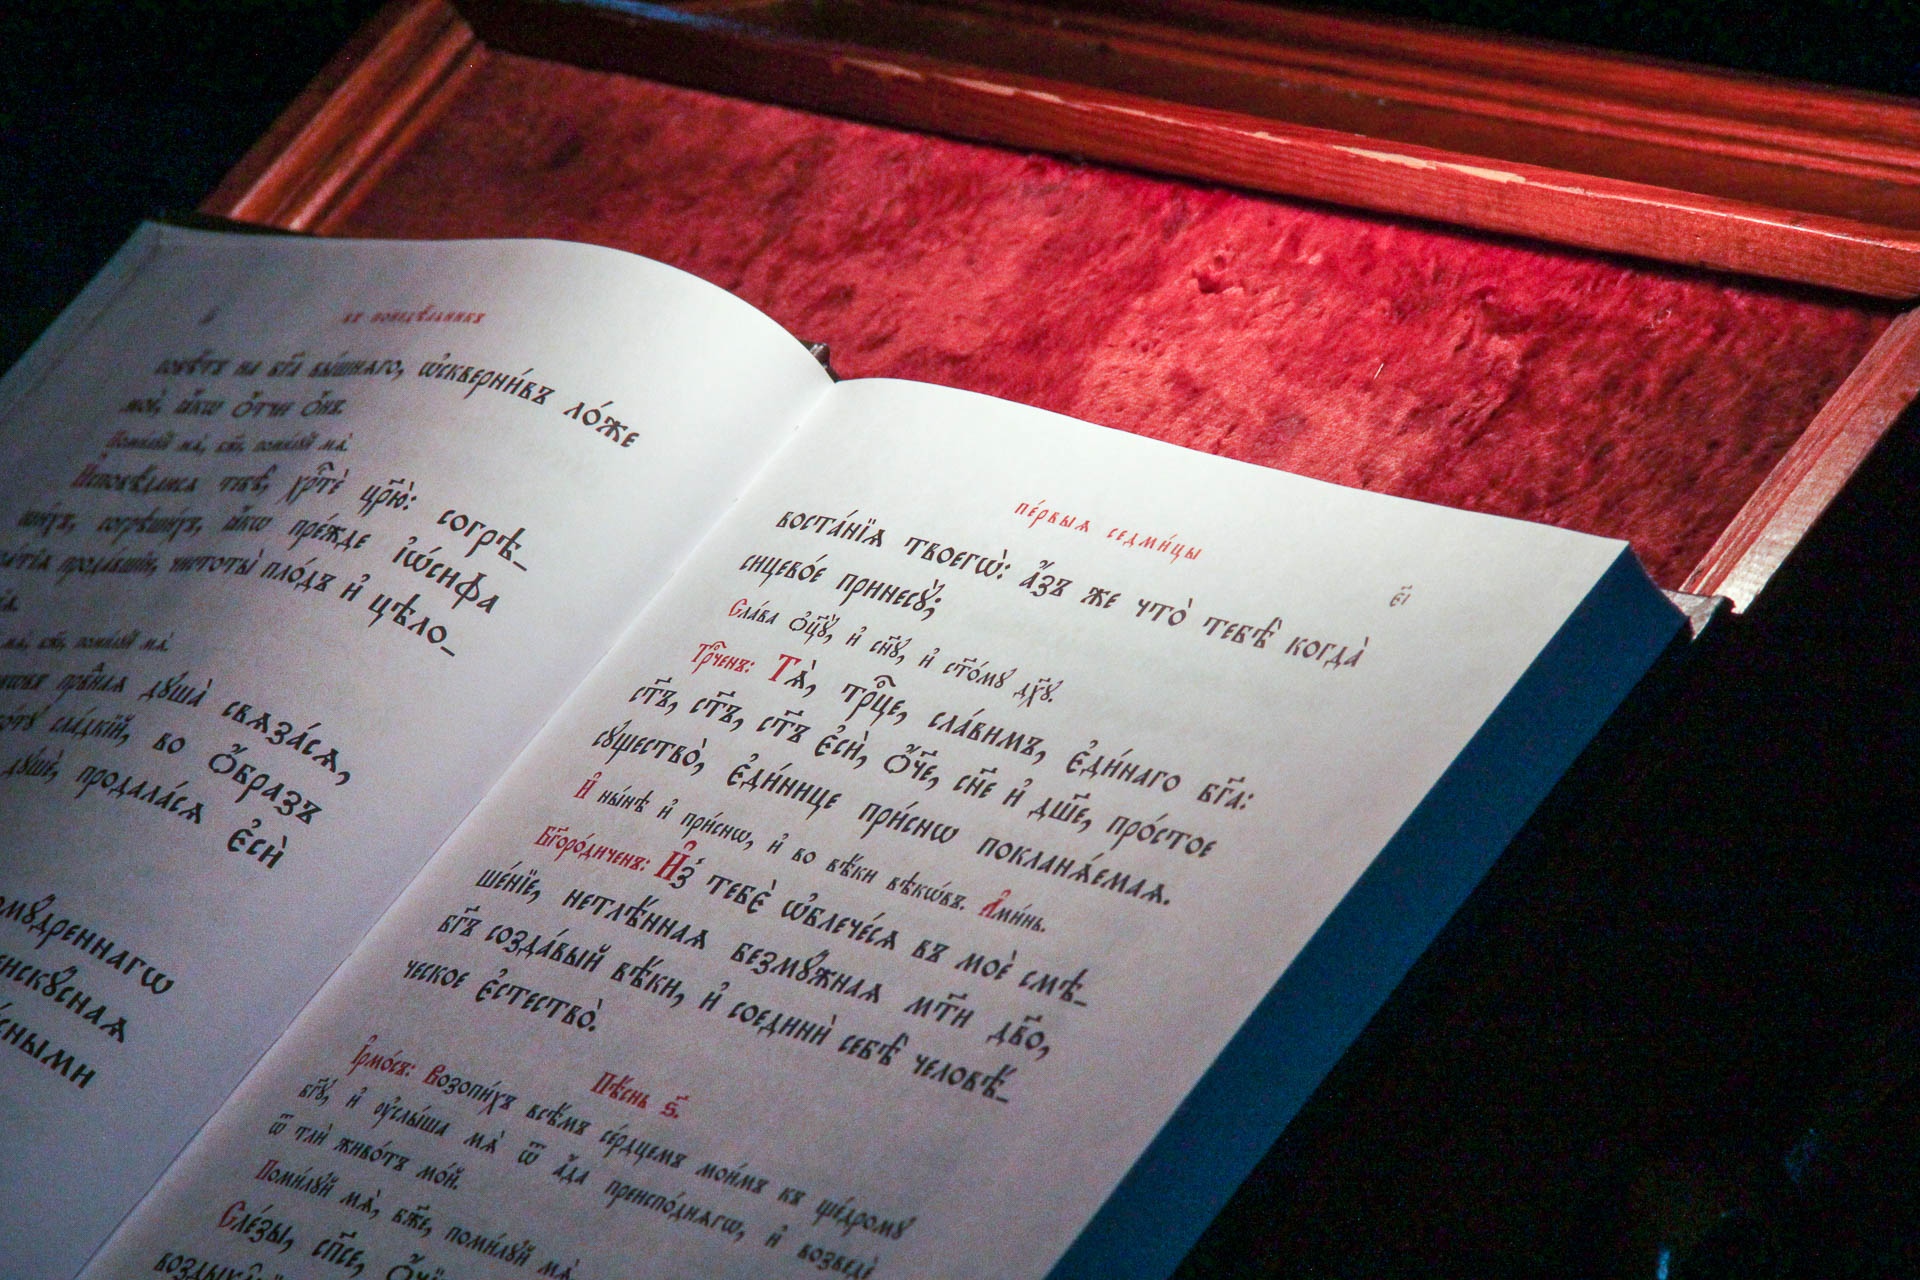 въ понедѣльникъ
совѣтъ на бг҃а вы́шняго, ѡ҆скверни́въ ло́же
моѐ, ꙗ҆́кѡ ѻ҆́тчее ѻ҆́нъ.
Поми́лꙋй мѧ̀, бж҃е, поми́лꙋй мѧ̀.
И҆сповѣ́даюсѧ тебѣ̀, хрⷭ҇тѐ цр҃ю̀: согрѣ-
ши́хъ, согрѣши́хъ, ꙗ҆́кѡ пре́жде і҆ѡ́сифа
бра́тїѧ прода́вшїи, чистоты̀ пло́дъ и҆ цѣло-
мѧ̀, бж҃е, поми́лꙋй мѧ̀.
првⷣнаѧ дꙋша̀ свѧза́сѧ,
сла́дкїй, во ѻ҆́бразъ
дꙋшѐ, продала́сѧ є҆сѝ
пе́рвыѧ седми́цы
є҃і
воста́нїѧ твоегѡ̀: а҆́зъ же что̀ тебѣ̀ когда̀
сицево́е принесꙋ̀;
Сла́ва ѻ҆ц҃ꙋ̀, и҆ сн҃ꙋ, и҆ ст҃о́мꙋ дх҃ꙋ.
Трⷪ҇ченъ: Тѧ̀, трⷪ҇це, сла́вимъ, є҆ди́наго бг҃а:
ст҃ъ, ст҃ъ, ст҃ъ є҆сѝ, ѻ҆́ч҃е, сн҃е и҆ дш҃е, про́стое
сꙋщество̀, є҆ди́нице при́снѡ покланѧ́емаѧ.
И҆ ны́нѣ и҆ при́снѡ, и҆ во вѣ́ки вѣкѡ́въ. А҆ми́нь.
Бг҃оро́диченъ: И҆з̾ тебє̀ ѡ҆блече́сѧ въ моѐ смѣ-
ше́нїе, нетлѣ́ннаѧ безмꙋ́жнаѧ мт҃и дв҃о,
бг҃ъ созда́вый вѣ́ки, и҆ соединѝ себѣ̀ человѣ́-
ческое є҆стество̀.
Пѣ́снь ѕ҃.
І҆рмо́съ: Возопи́хъ всѣ́мъ се́рдцемъ мои́мъ къ ще́дромꙋ
бг҃ꙋ, и҆ ᲂу҆слы́ша мѧ̀ ѿ а҆́да преиспо́днѧгѡ, и҆ возведѐ
ѿ тлѝ живо́тъ мо́й.
Поми́лꙋй мѧ̀, бж҃е, поми́лꙋй мѧ̀.
Сле́зы, сп҃се,